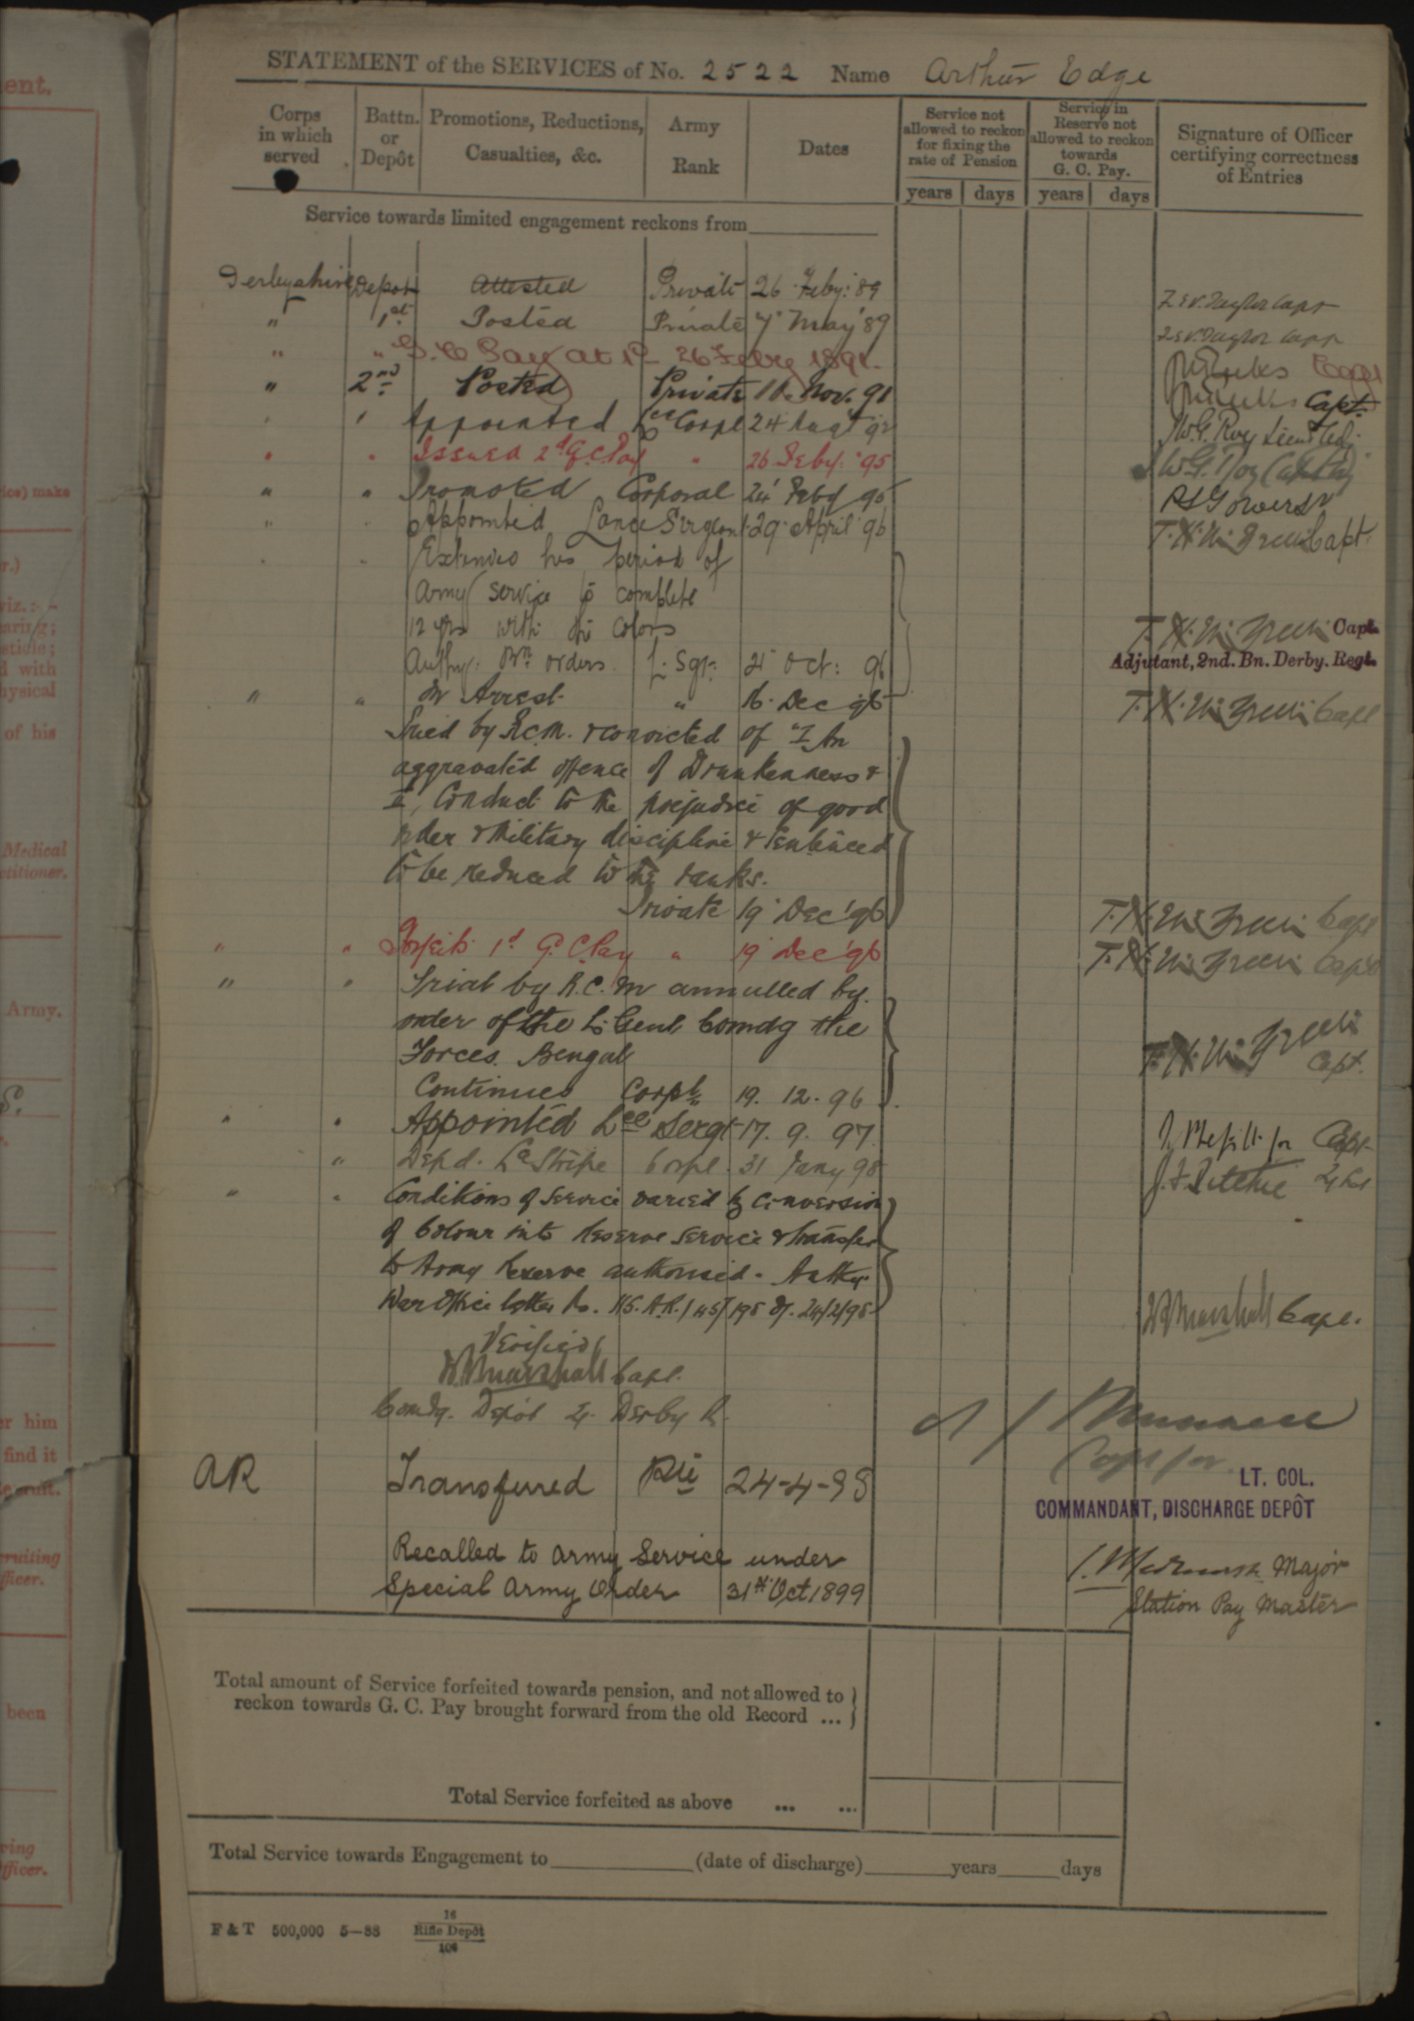 ent.
STATEMENT of the SERVICES of No. 2522 Name Arthur Edge
Corps in which served
Battn. or Depôt
Promotions, Reductions, Casualties, &c.
Army Rank
Dates
Service not allowed to reckon for fixing the rate of Pension
Service in Reserve not allowed to reckon towards G. C. Pay.
Signature of Officer certifying correctness of Entries
years days years days
Service towards limited engagement reckons from
Derbyshire Depot Attested Private 26 Feby: 89 Taylor Capt
" 1st Posted Private 7 May 89 Taylor Capt
" " G. C Pay at 1d 26 Feby 1891.
" 2nd Posted Private 11. Nov. 91 Capt.
" " Appointed Lce Corpl 24 Augt 92 W.G. Roy Lieut
" " Issued 2d G.C. Pay " 26 Feby: 95 W.G. Roy
" " Promoted Corporal 24 Feby 96
" " Appointed Lance Sergeant 29 April 96 Capt.
" " Extended his period of
Army service to complete
12 yrs with the Colors Capt.
Authy: Bn. orders. L. Sgt. 21 Oct: 96 Adjutant, 2nd. Bn. Derby. Regt.
" " In Arrest " 16 Dec 96 Capt
Tried by R.C.M. & convicted of "I An
aggravated offence of Drunkenness &
II, Conduct to the prejudice of good
order & Military discipline & Sentenced
to be reduced to the ranks.
Private 19 Dec '96 Capt
" " Forfeits 1d G. C. Pay " 19 Dec '96 Capt
" " Trial by R.C.M annulled by
order of the Lt Genl Comdg the
Forces. Bengal
Continues Corpl. 19. 12. 96 Capt.
" " Appointed Lce Sergt 17. 9. 97. for Capt
" Depd. Lce Stripe Corpl. 31 Jany 98 J. F. Ritchie
" " Conditions of Service varied by Conversion
of Colour into Reserve Service & transfer
to Army Reserve authorised. Authy.
War Office letter No. Marshall Capt.
Verified
Marshall Capt.
Comdg. Depôt Derby R.
Capt for
AR Transferred Pte 24-4-98 LT. COL.
COMMANDANT, DISCHARGE DEPÔT
Recalled to Army Service under Major
Special Army Order 31st Oct 1899 Station Pay Master
Total amount of Service forfeited towards pension, and not allowed to
reckon towards G. C. Pay brought forward from the old Record ...
Total Service forfeited as above ... ...
Total Service towards Engagement to (date of discharge) years days
F & T 500,000 5—88 16
Rifle Depôt
104
make
viz.:-
with
of his
Medical
Army.
him
find it
been